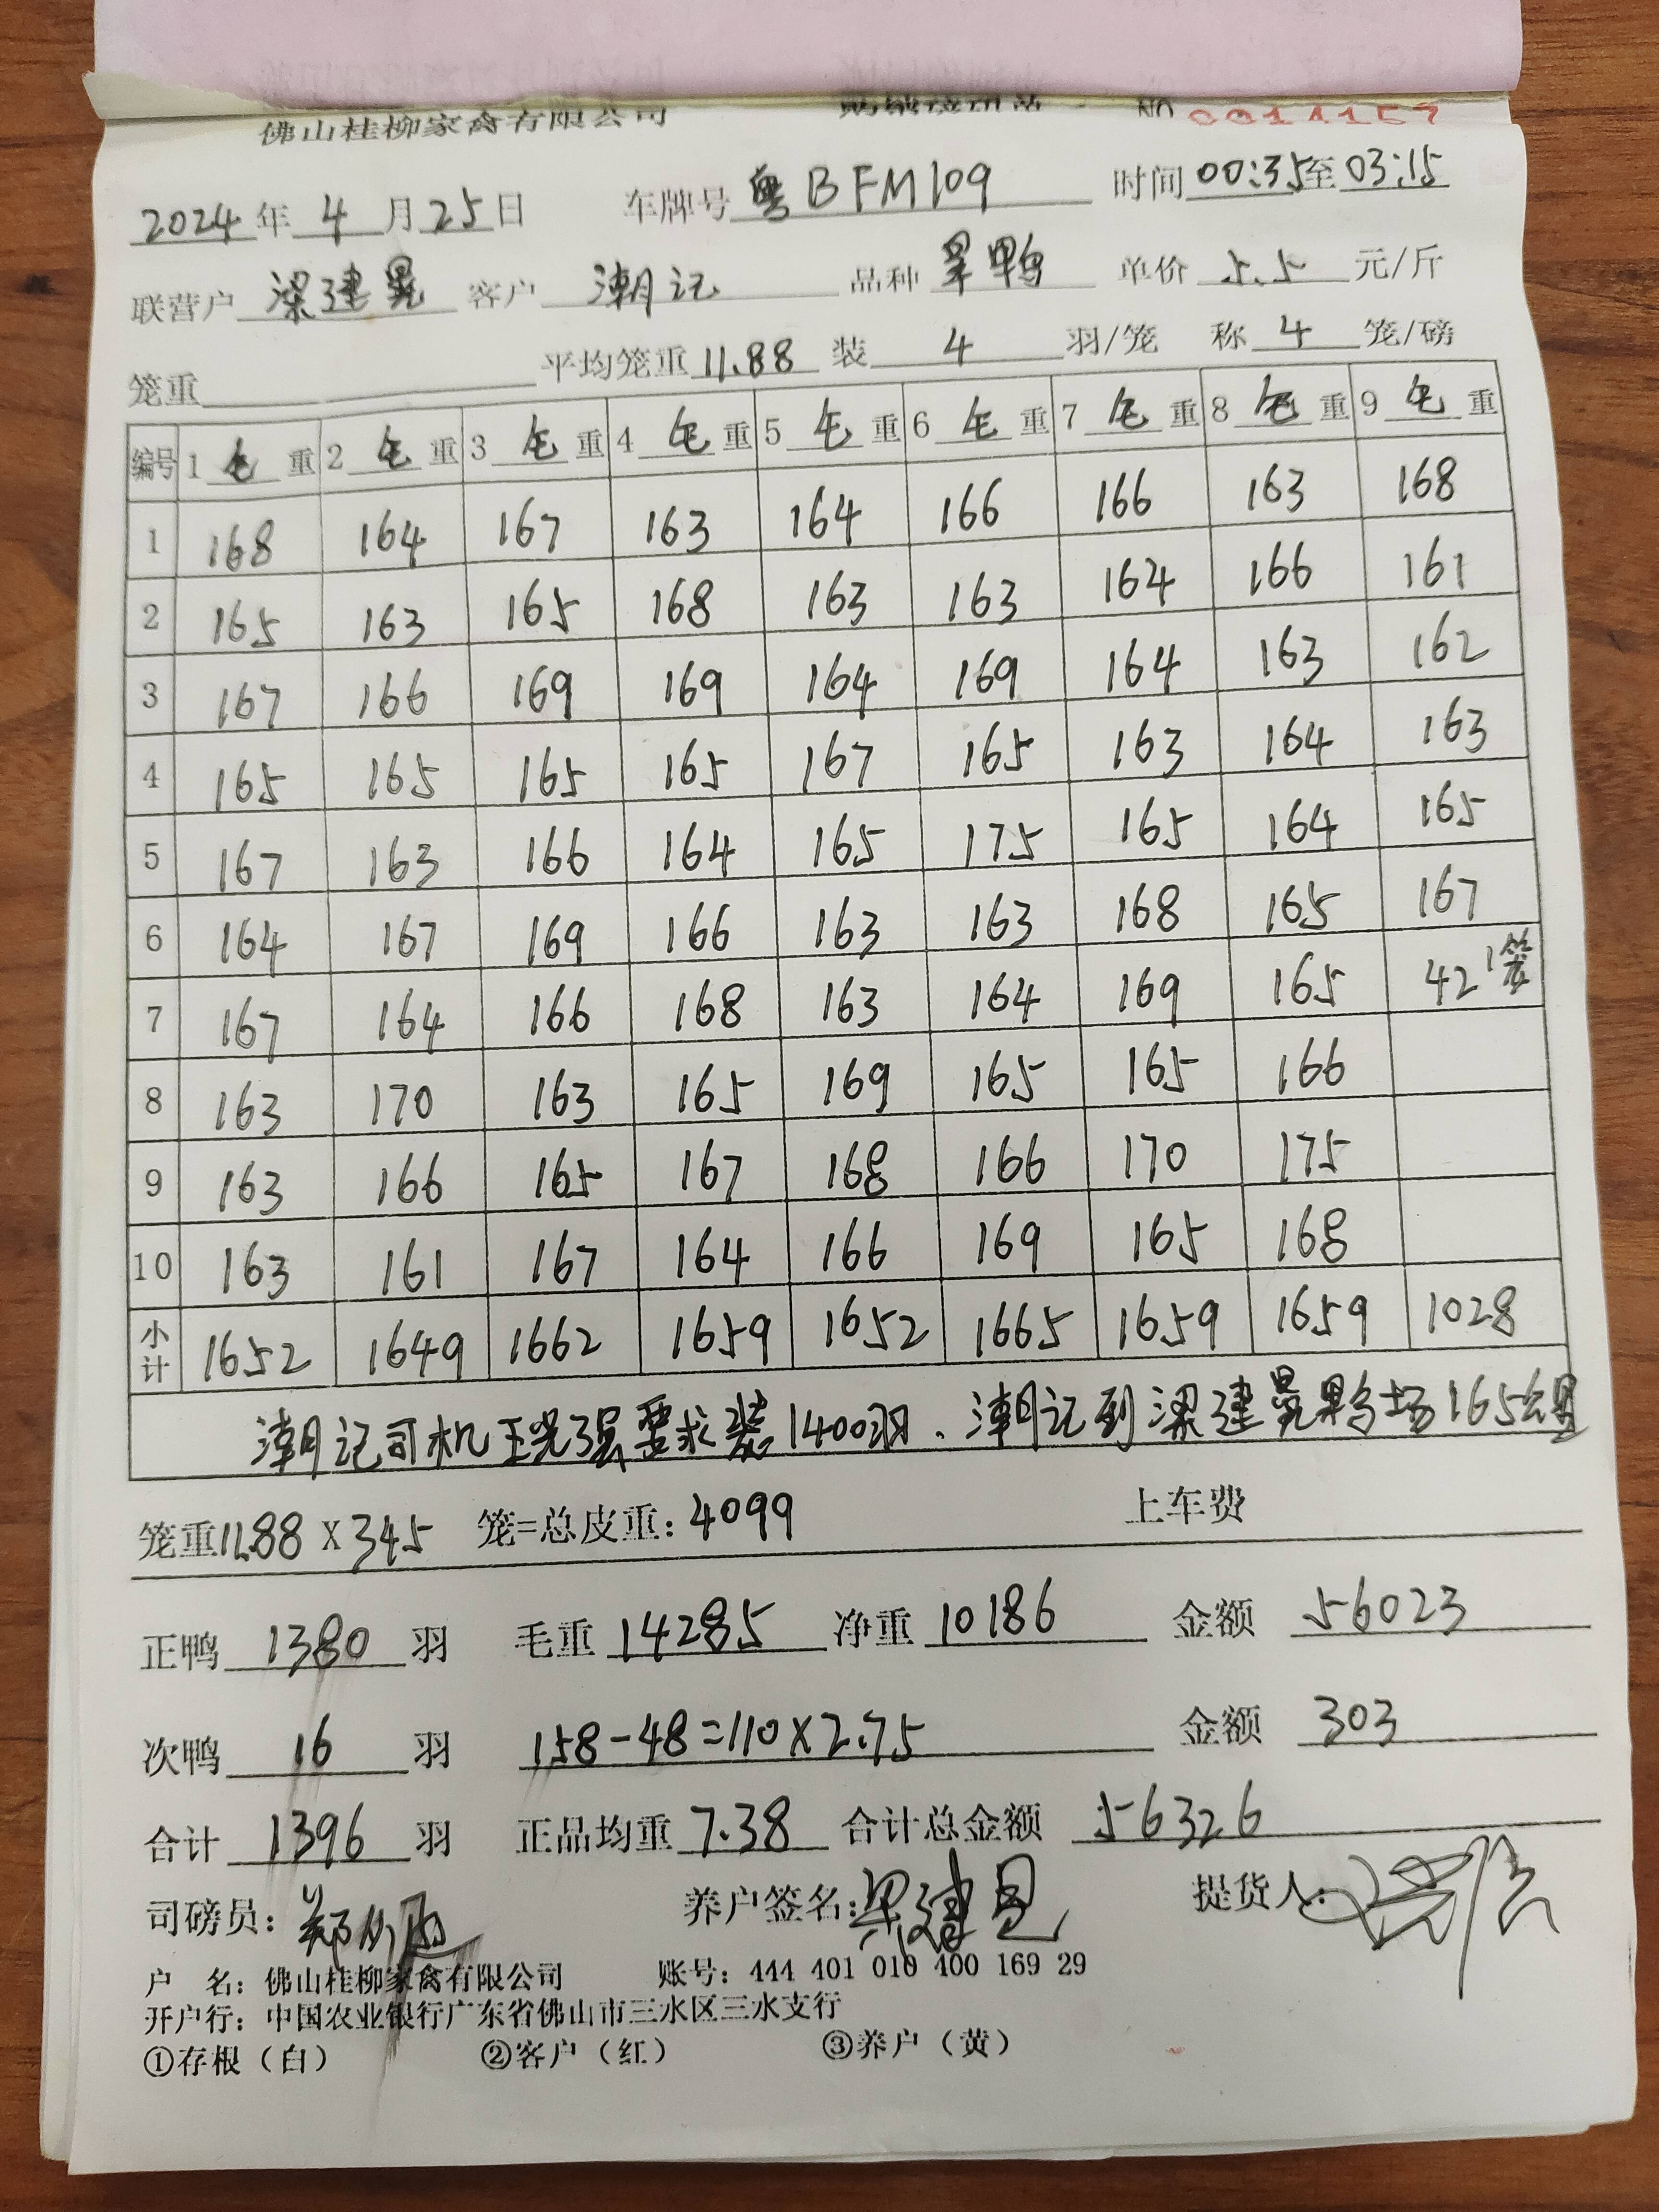 佛山桂柳家禽有限公司 NO 0014157
2024年4月25日 车牌号 粤BFM109 时间 00:35至03:15
联营户 梁建晃 客户 潮记 品种 旱鸭 单价 5.5 元/斤
笼重 平均笼重 11.88 装 4 羽/笼 称 4 笼/磅
编号 1 毛 重 2 毛 重 3 毛 重 4 毛 重 5 毛 重 6 毛 重 7 毛 重 8 毛 重 9 毛 重
1 168 164 167 163 164 166 166 163 168
2 165 163 165 168 163 163 164 166 161
3 167 166 169 169 164 169 164 163 162
4 165 165 165 165 167 165 163 164 163
5 167 163 166 164 165 175 165 164 165
6 164 167 169 166 163 163 168 165 167
7 167 164 166 168 163 164 169 165 42 1笼
8 163 170 163 165 169 165 165 166
9 163 166 165 167 168 166 170 175
10 163 161 167 164 166 169 165 168
小计 1652 1649 1662 1659 1652 1665 1659 1659 1028
潮记司机王光强要求装1400羽、潮记到梁建晃鸭场165公里
笼重11.88 X 345 笼=总皮重:4099 上车费
正鸭 1380 羽 毛重 14285 净重 10186 金额 56023
次鸭 16 羽 158-48=110X2.75 金额 303
合计 1396 羽 正品均重 7.38 合计总金额 56326
司磅员: 养户签名:梁建晃 提货人:
户 名:佛山桂柳家禽有限公司 账号:444 401 010 400 169 29
开户行:中国农业银行广东省佛山市三水区三水支行
①存根(白) ②客户(红) ③养户(黄)